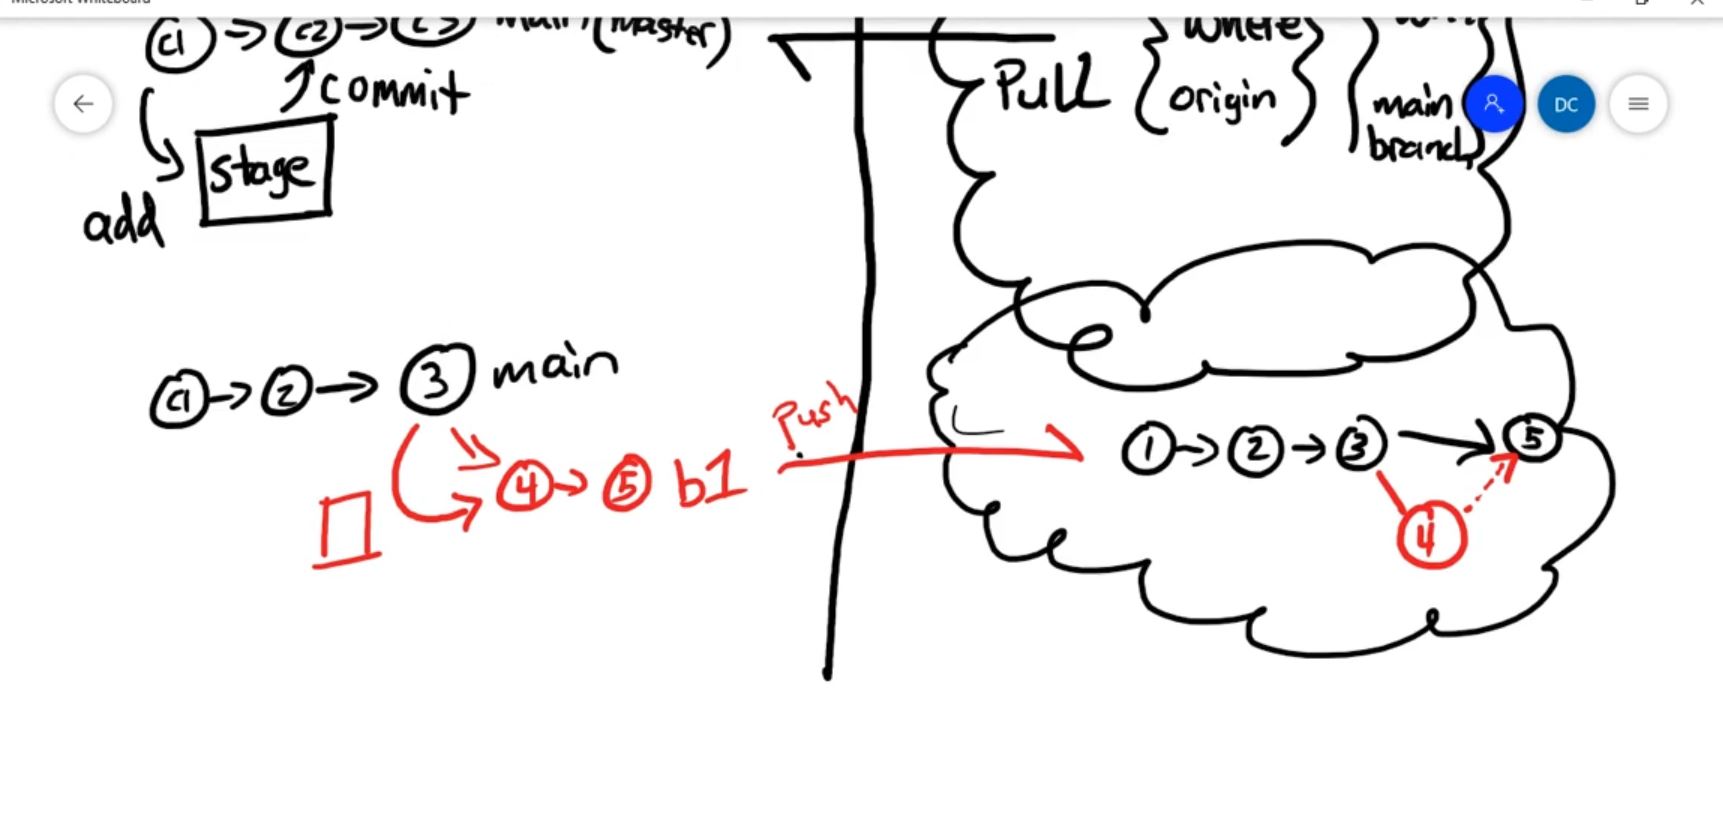 Microsoft Whiteboard
C1 → C2 → C3 main (master)
commit
stage
add
Pull { where } {
origin
main
branch
DC
C1 → 2 → 3 main
4 → 5 b1
Push
1 → 2 → 3 → 5
4